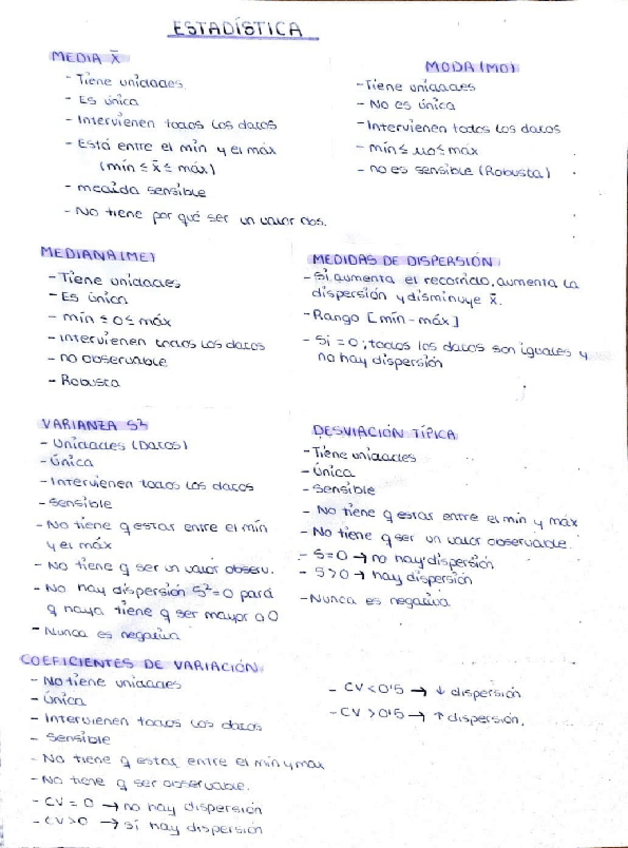 ESTADÍSTICA
MEDIA X̄
- Tiene unidades
- Es única
- Intervienen todos los datos
- Está entre el mín y el máx
(mín ≤ x̄ ≤ máx)
- medida sensible
- No tiene por qué ser un valor obs.
MODA (MO)
- Tiene unidades
- No es única
- Intervienen todos los datos
- mín ≤ MO ≤ máx
- no es sensible (Robusta)
MEDIANA (ME)
- Tiene unidades
- Es única
- mín ≤ o ≤ máx
- intervienen todos los datos
- no observable
- Robusta
MEDIDAS DE DISPERSIÓN
- Si aumenta el recorrido, aumenta la
dispersión y disminuye x̄.
- Rango [mín - máx]
- Si = 0; todos los datos son iguales y
no hay dispersión
VARIANZA S²
- Unidades (Datos)
- única
- Intervienen todos los datos
- Sensible
- No tiene q estar entre el mín
y el máx
- No tiene q ser un valor observ.
- No hay dispersión S²=0 para
q haya tiene q ser mayor a 0
- Nunca es negativa
DESVIACIÓN TÍPICA
- Tiene unidades
- única
- Sensible
- No tiene q estar entre el mín y máx
- No tiene q ser un valor observable.
- S=0 → no hay dispersión
- S>0 → hay dispersión
- Nunca es negativa
COEFICIENTES DE VARIACIÓN
- No tiene unidades
- única
- Intervienen todos los datos
- Sensible
- No tiene q estar entre el mín y máx
- No tiene q ser observable.
- CV = 0 → no hay dispersión
- CV>0 → sí hay dispersión
- CV<0'5 → ↓ dispersión
- CV >0'5 → ↑ dispersión.